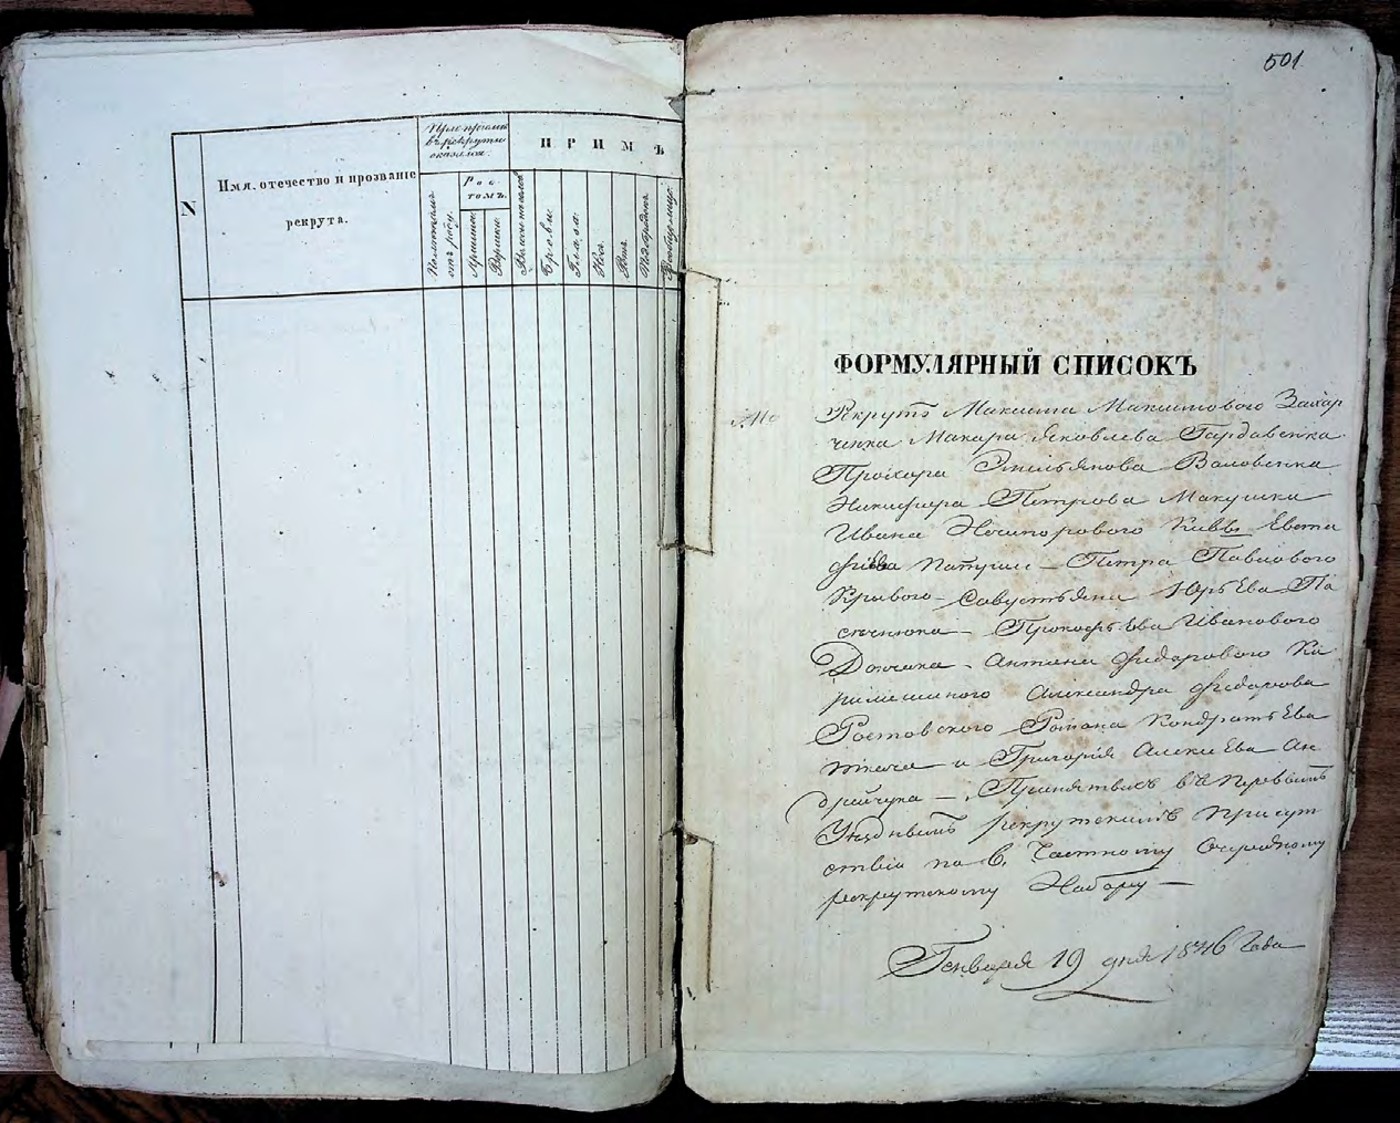 N
Имя, отечество и прозваніе
рекрута.
При пріемѣ
въ рекруты
оказался.
Рос-
томъ.
отъ роду.
Аршины.
Вершки.
ПРИМѢ
Брови.
Глаза.
Носъ.
Ротъ.
501
ФОРМУЛЯРНЫЙ СПИСОКЪ
Рекрутъ Максима Максимового Захар
ченка Макара Яковлева Гардавенка
Прохора Емельянова Воловенка
Никифора Петрова Макушки
Ивана Нечипорового Евста
фіева Петра Павлового
Кривого Савустьяна Юрьева Па
сечнюка Прокофьева Иванового
Дончика Антона Фидорового
Александра Фидорова
Ростовского Романа Кондратьева
Ткача и Григорія Алексѣева Ан
дрійчука Принятыхъ въ Первымъ
Уѣзднымъ рекрутскимъ присут
ствіи по 6. Частному Очередному
рекрутскому Набору
Генваря 19 дня 1846 Года